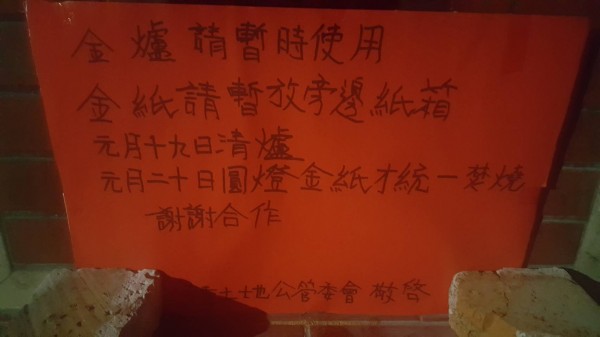 金爐請暫時使用
金紙請暫放旁邊紙箱
元月十九日清爐
元月二十日圓燈金紙才統一焚燒
謝謝合作
土地公管委會 敬啓